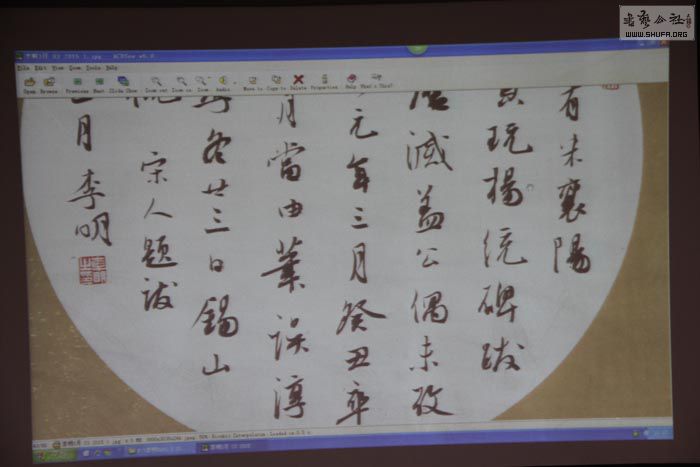 書藝公社
WWW.SHUFA.ORG
李明3月 03 2015 1.jpg - ACDSee v6.0
File Edit View Zoom Tools Help
Open Browse Previous Next Slide Show Zoom out Zoom in Zoom Audio Move to Copy to Delete Properties Help What's This?
有米襄陽
玩楊統碑跋
滅蓋公偶未考
元年三月癸丑卒
月當由葉誤淳
冬廿三日錫山
宋人題跋
月李明